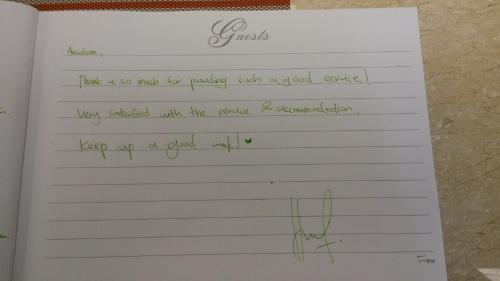 Guests
Thank u so much for providing such a good service!
Very satisfied with the service & accommodation.
Keep up a good work! ♥